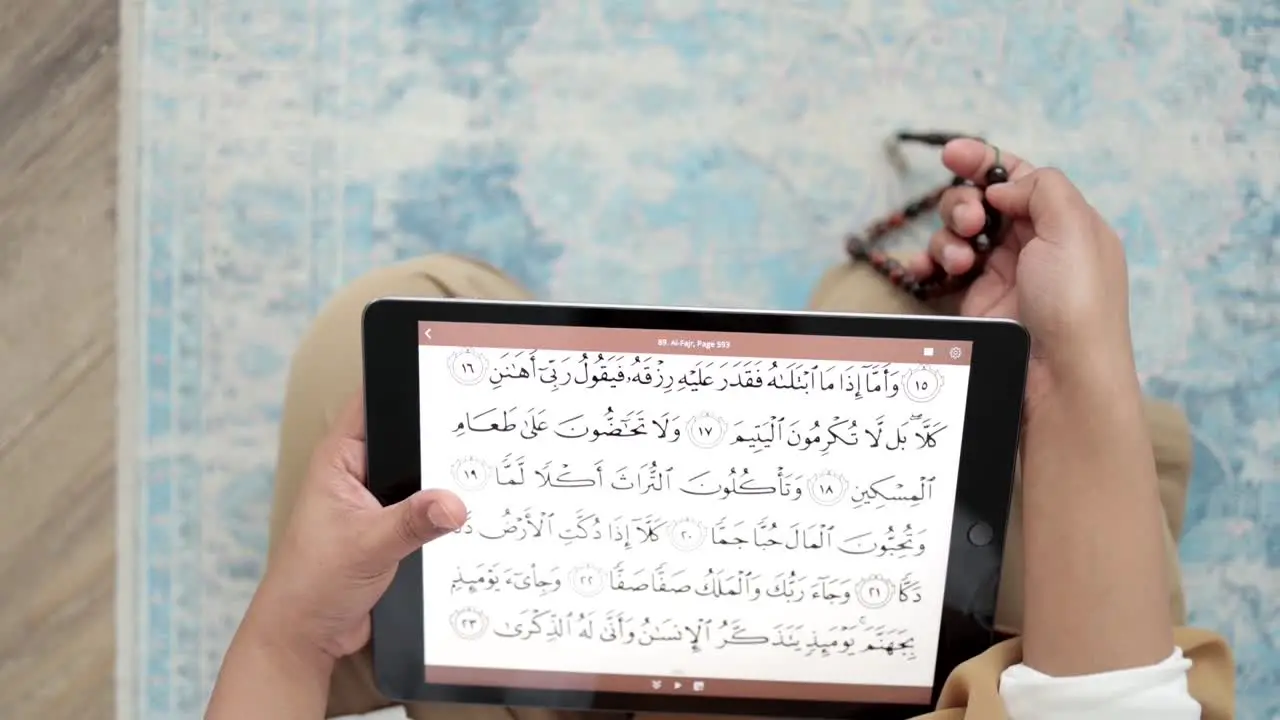 89. Al-Fajr, Page 593
١٥ وَأَمَّآ إِذَا مَا ٱبْتَلَىٰهُ فَقَدَرَ عَلَيْهِ رِزْقَهُۥ فَيَقُولُ رَبِّىٓ أَهَـٰنَنِ ١٦
كَلَّا ۖ بَل لَّا تُكْرِمُونَ ٱلْيَتِيمَ ١٧ وَلَا تَحَـٰٓضُّونَ عَلَىٰ طَعَامِ
ٱلْمِسْكِينِ ١٨ وَتَأْكُلُونَ ٱلتُّرَاثَ أَكْلًا لَّمًّا ١٩
وَتُحِبُّونَ ٱلْمَالَ حُبًّا جَمًّا ٢٠ كَلَّآ إِذَا دُكَّتِ ٱلْأَرْضُ
دَكًّا ٢١ وَجَآءَ رَبُّكَ وَٱلْمَلَكُ صَفًّا صَفًّا ٢٢ وَجِا۟ىٓءَ يَوْمَئِذٍۭ
بِجَهَنَّمَ ۚ يَوْمَئِذٍ يَتَذَكَّرُ ٱلْإِنسَـٰنُ وَأَنَّىٰ لَهُ ٱلذِّكْرَىٰ ٢٣